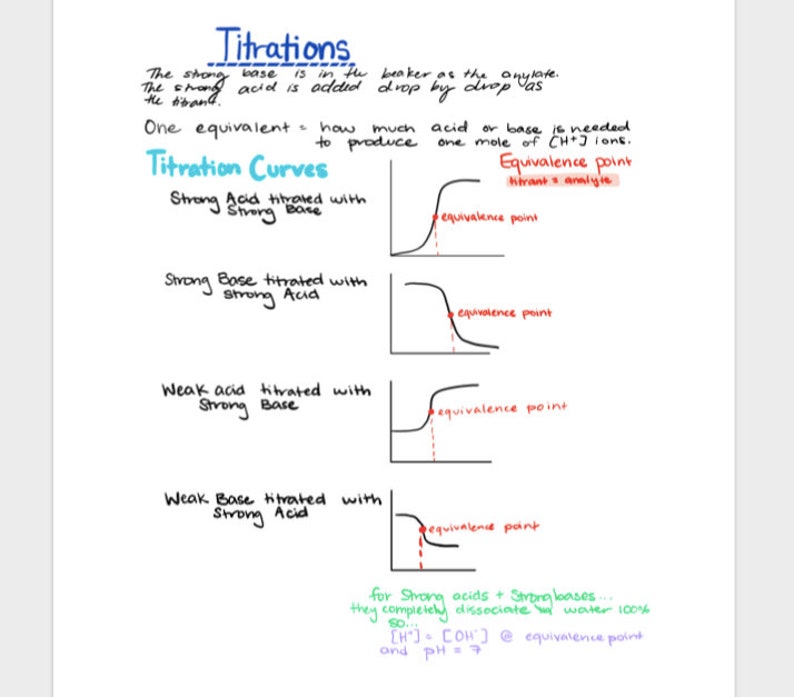 Titrations
The strong base is in the beaker as the anylate.
The strong acid is added drop by drop as
the titrant.
One equivalent = how much acid or base is needed
to produce one mole of [H+] ions.
Titration Curves
Equivalence point
titrant = analyte
Strong Acid titrated with
Strong Base
equivalence point
Strong Base titrated with
Strong Acid
equivalence point
Weak acid titrated with
Strong Base
equivalence point
Weak Base titrated with
Strong Acid
equivalence point
for Strong acids + Strong bases...
they completely dissociate in water 100%
so...
[H+] = [OH-] @ equivalence point
and pH = 7